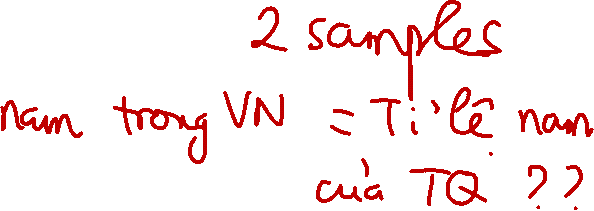 2 samples
nam trong VN = Tỉ lệ nam
của TQ ??